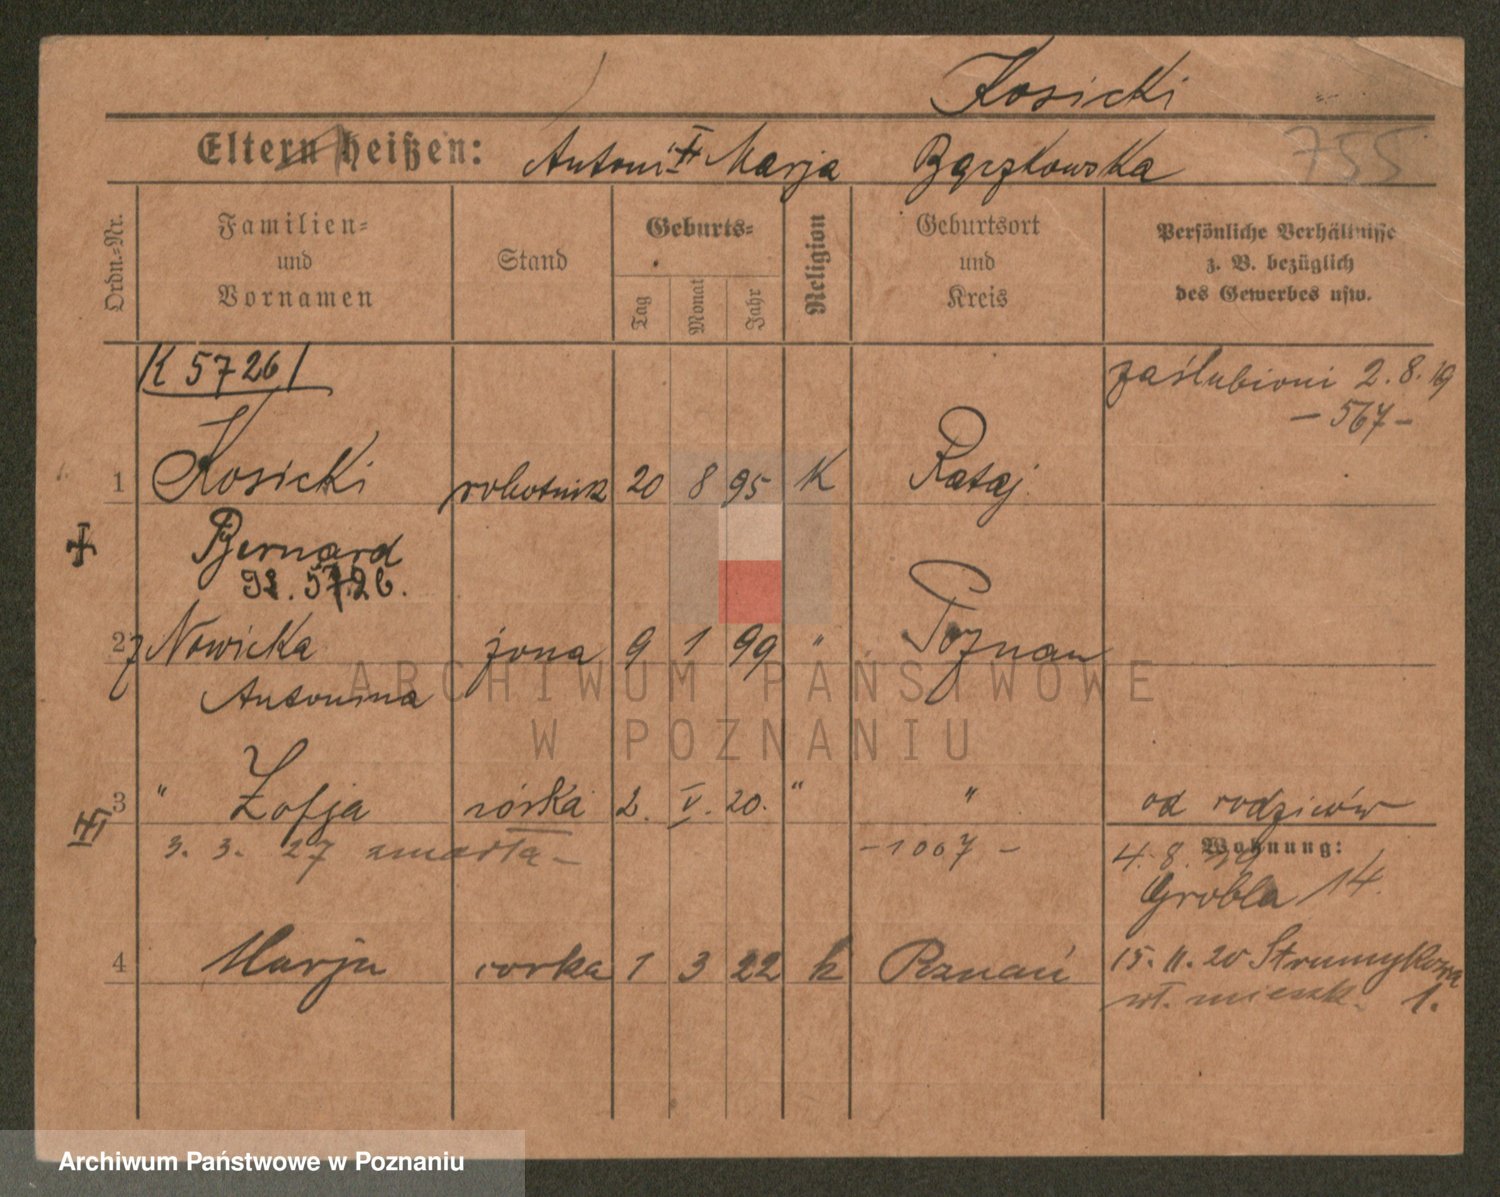 Kosicki
Eltern heißen: Antoni Marja Bączkowska 755
Ordn.-Nr. Familien- und Vornamen Stand Geburts- Tag Monat Jahr Religion Geburtsort und Kreis Persönliche Verhältnisse z. B. bezüglich des Gewerbes usw.
K 5726 zaślubieni 2.8.19
- 567 -
1 Kosicki robotnik 20 8 95 K Rataj
Bernard
5726.
2 Nowicka żona 9 1 99 " Poznan
Antonina
3 " Zofja córka 2. V. 20. " " od rodziców
3. 3. 27 zmarła - - 1007 - Wohnung:
4. 8.
Grobla 14.
4 Marja corka 1 3 22 k Poznań 15. 11. 20 Strumykowa
wł. mieszk. 1.
ARCHIWUM PAŃSTWOWE
W POZNANIU
Archiwum Państwowe w Poznaniu